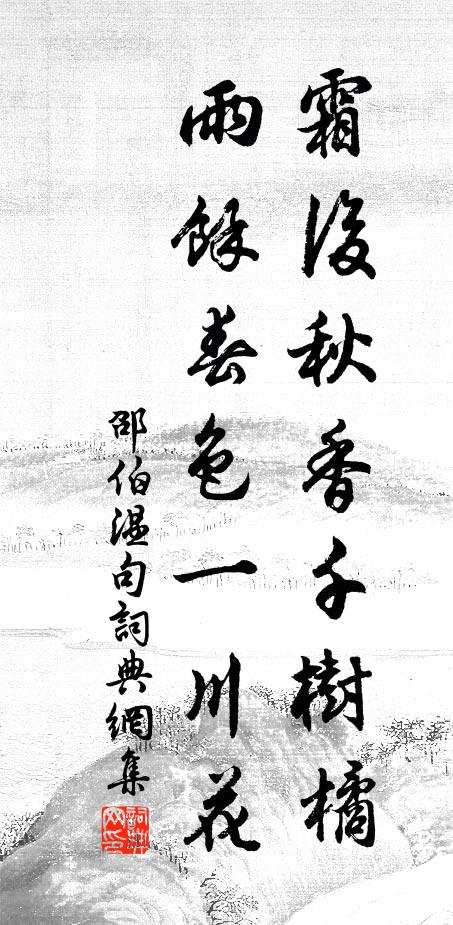 霜後秋香千樹橘
雨餘春色一川花
邵伯溫句詞典網集